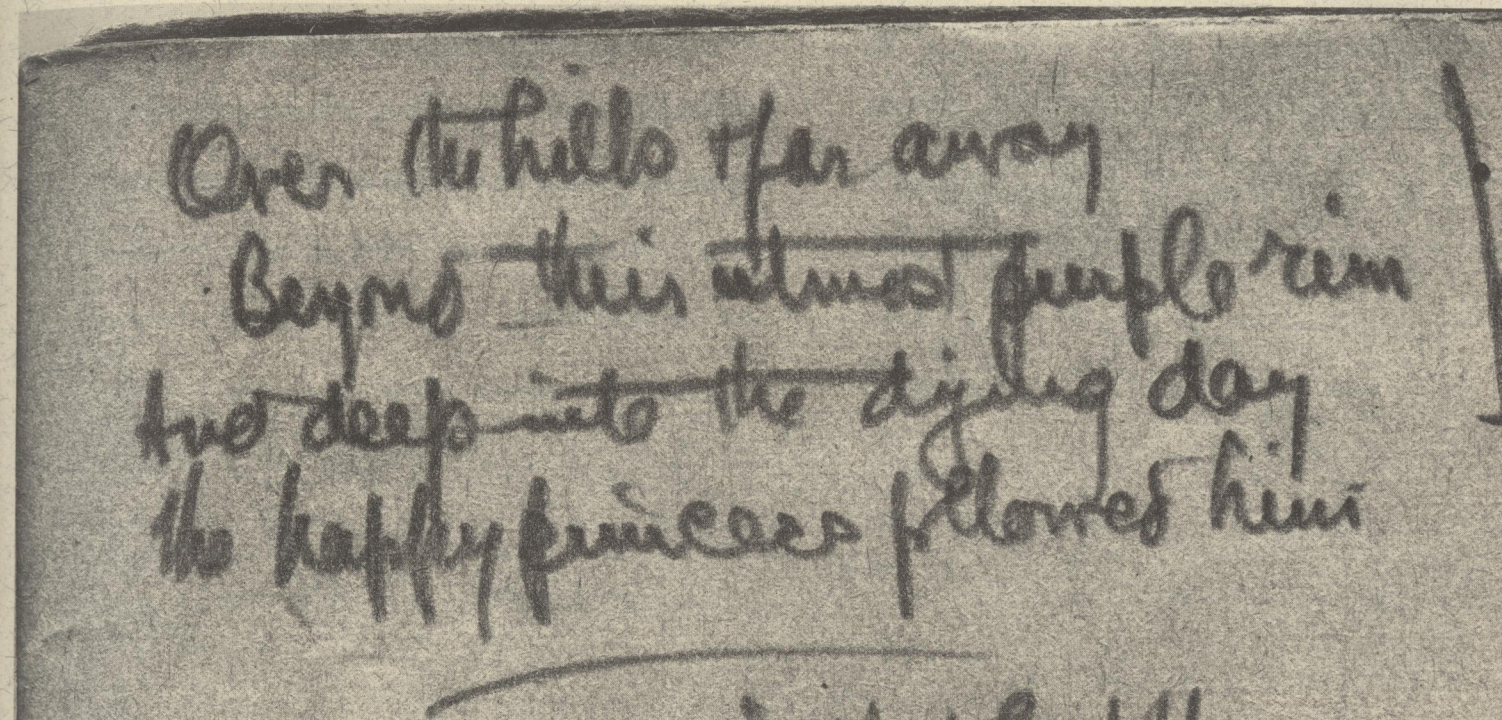 Over the hills + far away
Beyond their utmost purple rim
And deep into the dying day
the happy princess followed him